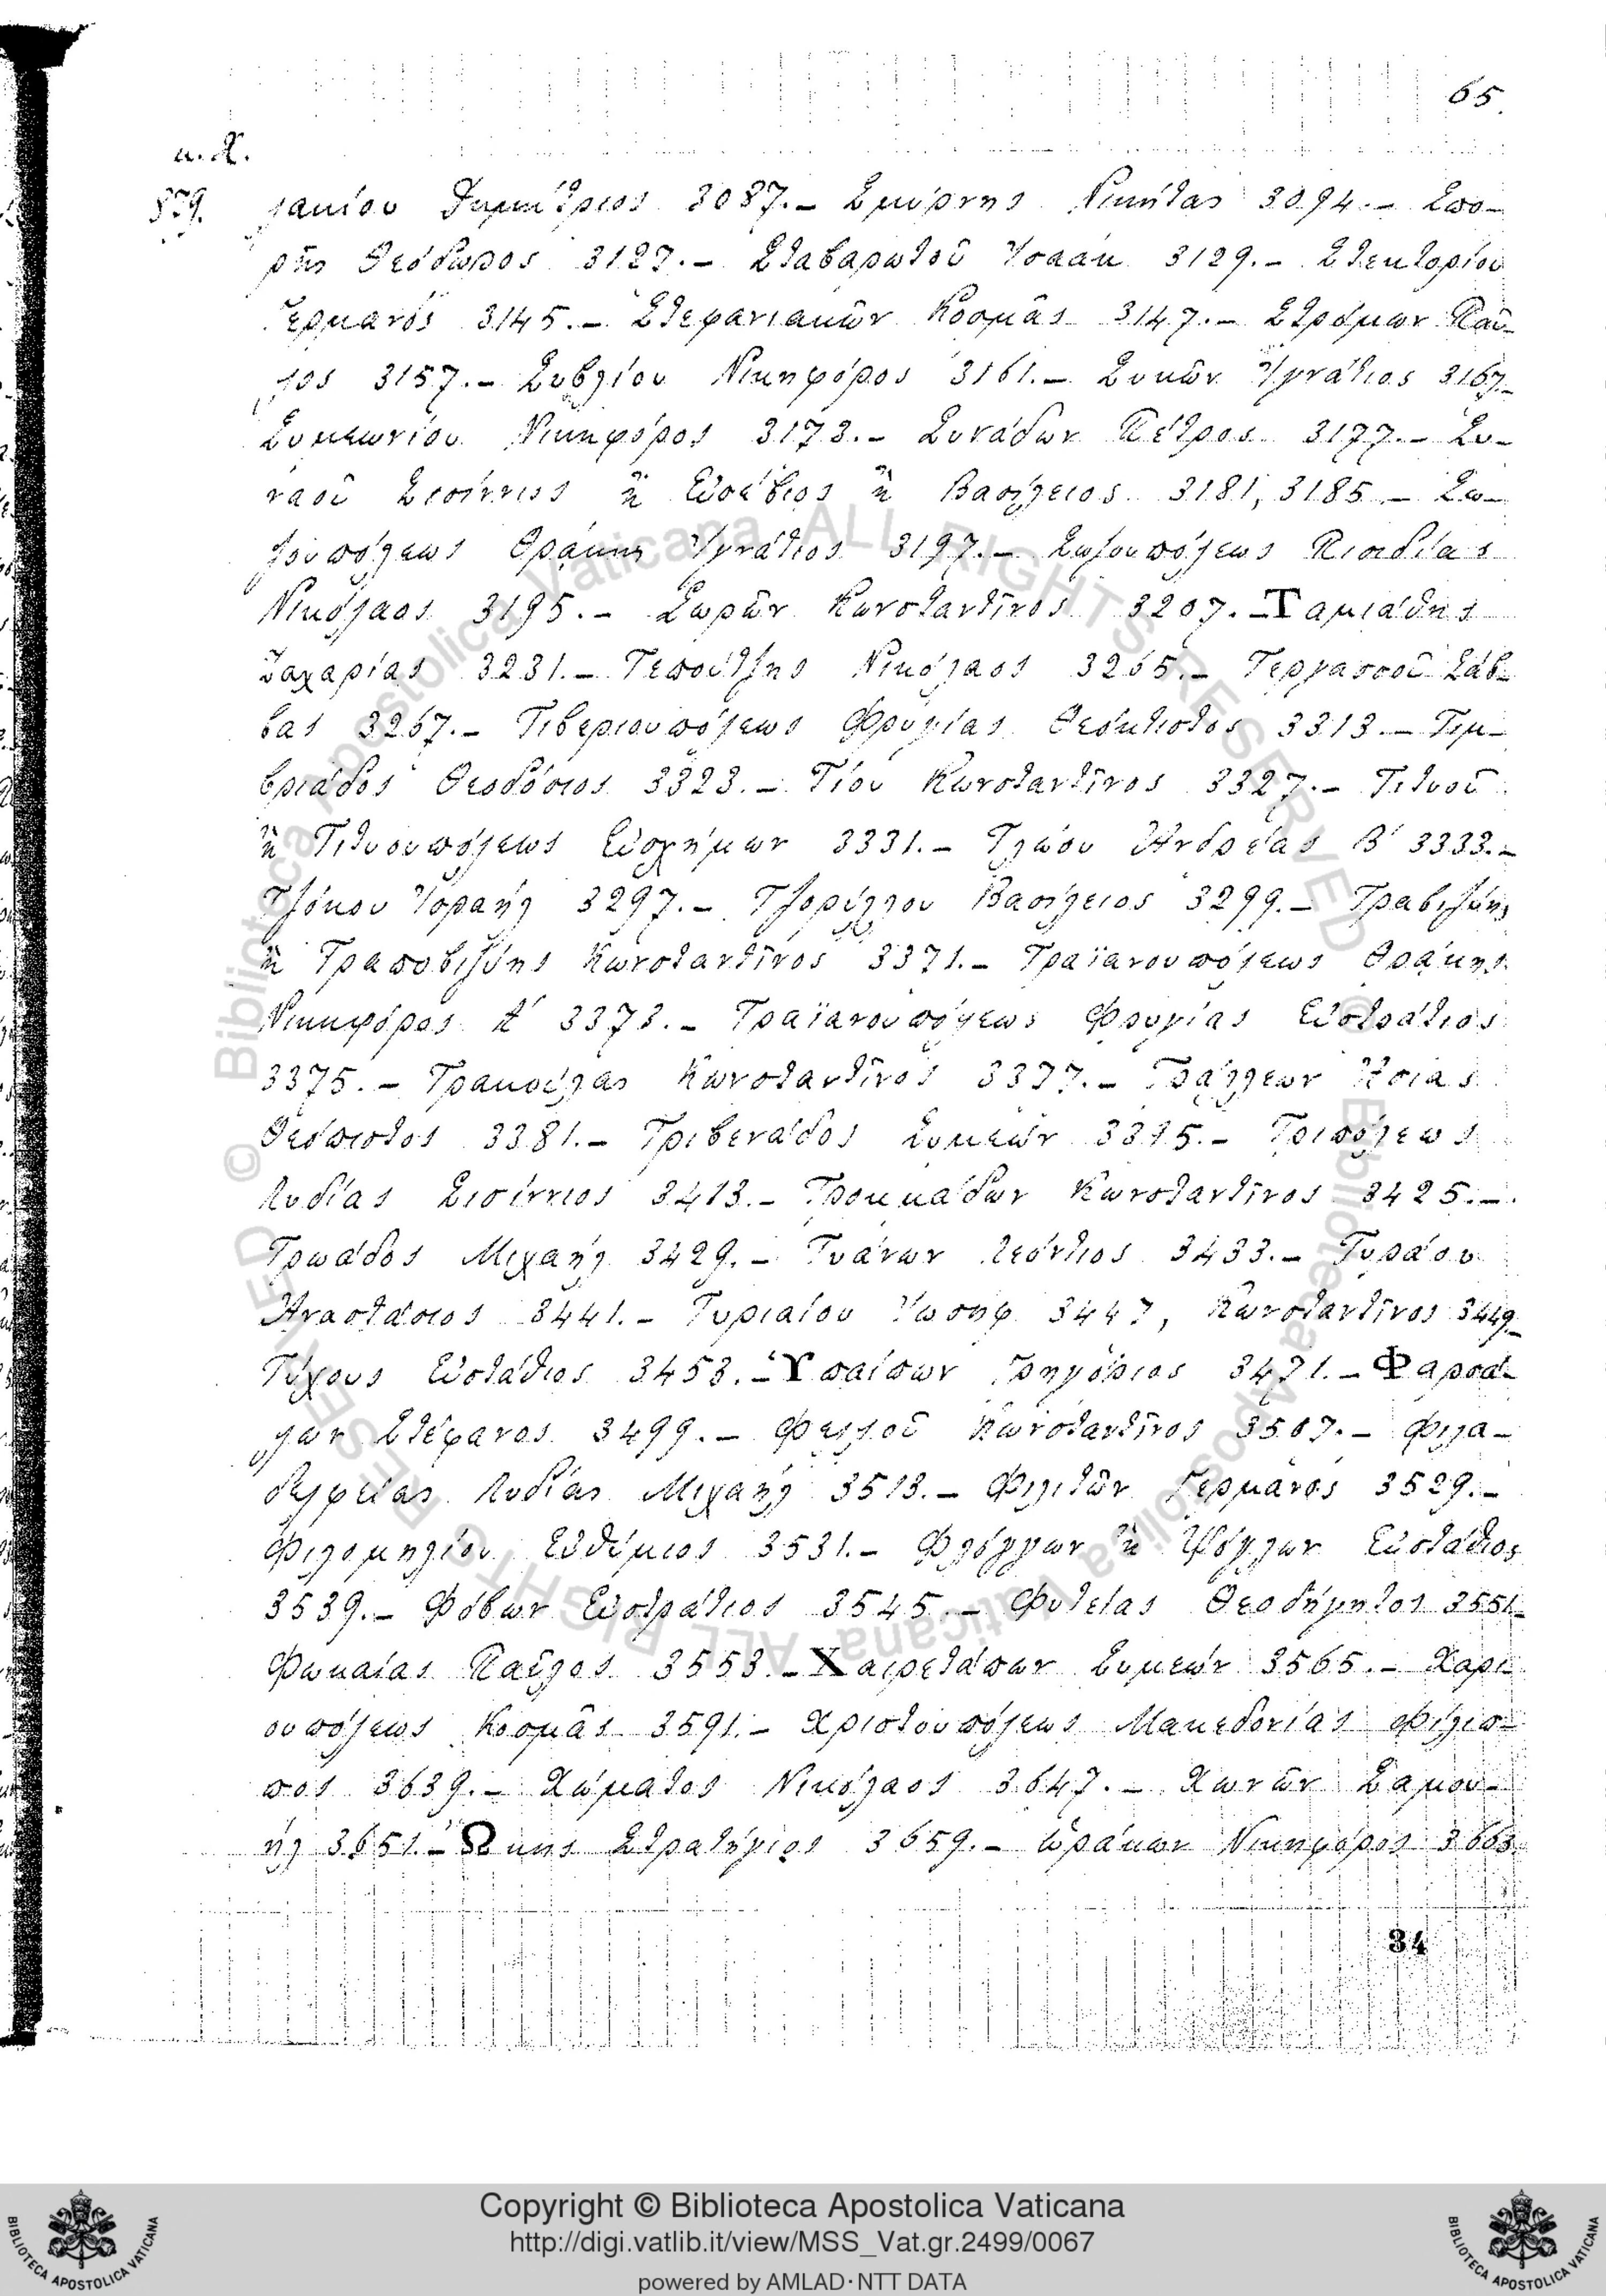 65
μ.Χ.
879. λανίου Δημήτριος 3087.- Σμύρνης Νικήτας 3094.- Σπο-
ρῆς Θεόδωρος 3127.- Σταβαρωτοῦ Ἰσαάκ 3129.- Στεκτορίου
Γερμανός 3145.- Στεφανιακῶν Κοσμᾶς 3147.- Στρόμων Παῦ-
λος 3157.- Συβλίου Νικηφόρος 3161.- Συκῶν Ἰγνάτιος 3167.-
Συμεωνίου Νικηφόρος 3173.- Συνάδων Πέτρος 3177.- Συ-
ναοῦ Σισίννιος ἢ Εὐσέβιος ἢ Βασίλειος 3181, 3185.- Σω-
ζουπόλεως Θράκης Ἰγνάτιος 3197.- Σωζουπόλεως Πισιδίας
Νικόλαος 3195.- Σωρῶν Κωνσταντῖνος 3207.- Ταμιάθης
Ζαχαρίας 3231.- Τεπούτζης Νικόλαος 3265.- Τερμασσοῦ Σάβ-
βας 3267.- Τιβεριουπόλεως Φρυγίας Θεόκτιστος 3313.- Τιμ-
βριάδος Θεοδόσιος 3323.- Τίου Κωνσταντῖνος 3327.- Τιτυοῦ
ἢ Τιτυουπόλεως Εὐσχήμων 3331.- Τλώου Ἀνδρέας Β′ 3333.-
Τζόκου Ἰσραήλ 3297.- Τζορύλλου Βασίλειος 3299.- Τραβιζύης
ἢ Τραποβιζύης Κωνσταντῖνος 3371.- Τραϊανουπόλεως Θράκης
Νικηφόρος Α′ 3373.- Τραϊανουπόλεως Φρυγίας Εὐστράτιος
3375.- Τρακούλας Κωνσταντῖνος 3377.- Τράλλεων Ἀσίας
Θεόπιστος 3381.- Τριβενάδος Συμεών 3395.- Τριπόλεως
Λυδίας Σισίννιος 3413.- Τροκμάδων Κωνσταντῖνος 3425.-
Τρωάδος Μιχαήλ 3429.- Τυάνων Λεόντιος 3433.- Τυράου
Ἀναστάσιος 3441.- Τυριαίου Ἰωσήφ 3447, Κωνσταντῖνος 3449.-
Τύχους Εὐστάθιος 3453.- Ὑπαίπων Γρηγόριος 3471.- Φαρσά-
λων Στέφανος 3499.- Φελλοῦ Κωνσταντῖνος 3507.- Φιλα-
δελφείας Λυδίας Μιχαήλ 3513.- Φιλιτῶν Γερμανός 3529.-
Φιλομηλίου Εὐθύμιος 3531.- Φλόγγων ἢ Ψόγλων Εὐστάθιος
3539.- Φόβων Εὐστράτιος 3545.- Φυτείας Θεοδήμητος 3551.-
Φωκαίας Παῦλος 3553.- Χαιρετάπων Συμεών 3565.- Χαρι-
ουπόλεως Κοσμᾶς 3591.- Χριστουπόλεως Μακεδονίας Φίλιπ-
πος 3639.- Χώματος Νικόλαος 3647.- Χωνῶν Σαμου-
ήλ 3651.- Ὤκης Στρατήγιος 3659.- Ὡράκων Νικηφόρος 3663.
34
© Biblioteca Apostolica Vaticana ALL RIGHTS RESERVED
© Biblioteca Apostolica Vaticana ALL RIGHTS RESERVED
BIBLIOTECA APOSTOLICA VATICANA
Copyright © Biblioteca Apostolica Vaticana
http://digi.vatlib.it/view/MSS_Vat.gr.2499/0067
powered by AMLAD·NTT DATA
BIBLIOTECA APOSTOLICA VATICANA